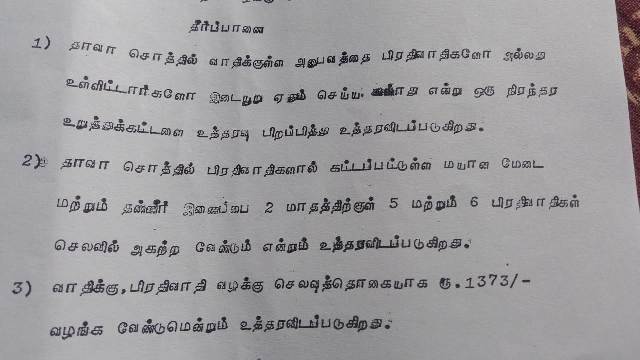 தீர்ப்பாணை
1) தாவா சொத்தில் வாதிக்குள்ள அனுபவத்தை பிரதிவாதிகளோ அல்லது
உள்ளிட்டார்களோ இடையூறு ஏதும் செய்ய என்று ஒரு நிரந்தர
உறுத்துக்கட்டளை உத்தரவு பிறப்பித்து உத்தரவிடப்படுகிறது.
2) தாவா சொத்தில் பிரதிவாதிகளால் கட்டப்பட்டுள்ள மயான மேடை
மற்றும் தண்ணீர் இணைப்பை 2 மாதத்திற்குள் 5 மற்றும் 6 பிரதிவாதிகள்
செலவில் அகற்ற வேண்டும் என்றும் உத்தரவிடப்படுகிறது.
3) வாதிக்கு,பிரதிவாதி வழக்கு செலவுத்தொகையாக ரூ.1373/-
வழங்க வேண்டுமென்றும் உத்தரவிடப்படுகிறது.